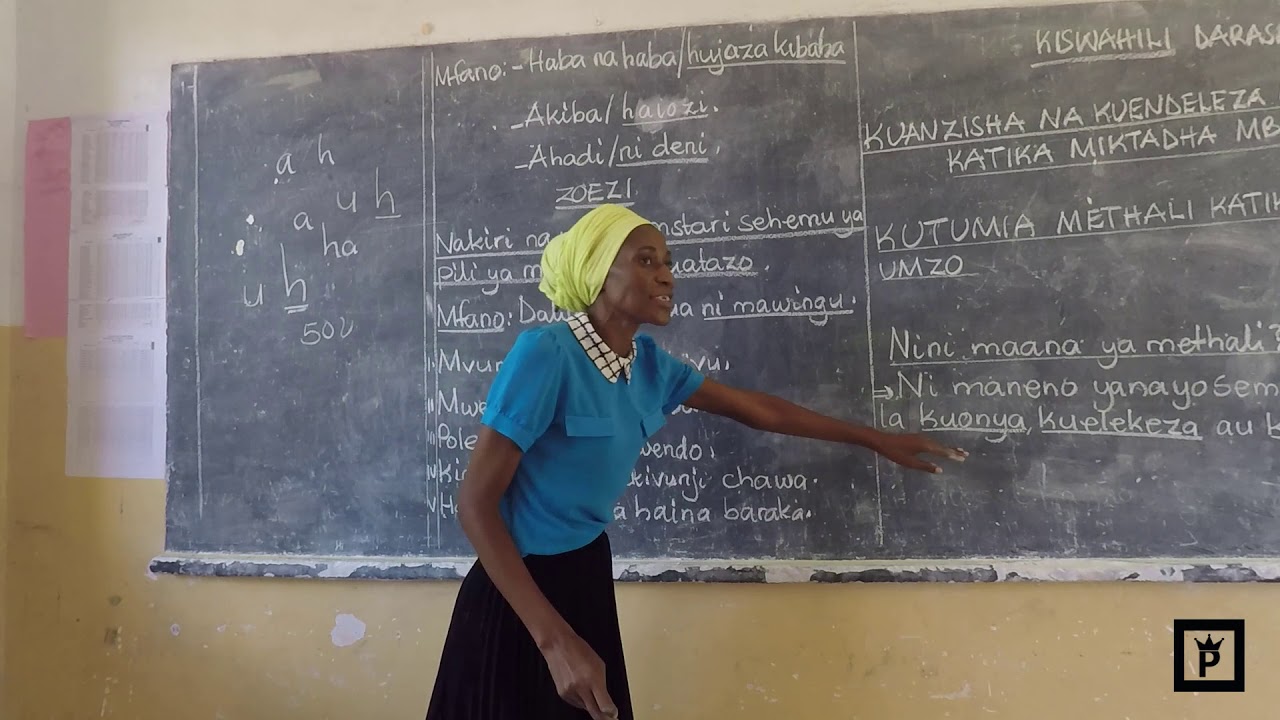 a h
u h
a
ha
u h
50
Mfano:- Haba na haba/hujaza kibaba
- Akiba/haiozi.
- Ahadi/ni deni.
ZOEZI
Nakiri na mstari sehemu ya
pili ya
Mfano: ni mawingu.
kivunji chawa.
haina baraka.
KISWAHILI DARAS
KUANZISHA NA KUENDELEZA
KATIKA MIKTADHA MB
KUTUMIA METHALI KATIK
UMZO
Nini maana ya methali?
→Ni maneno yanayosem
la kuonya, kuelekeza au k
P